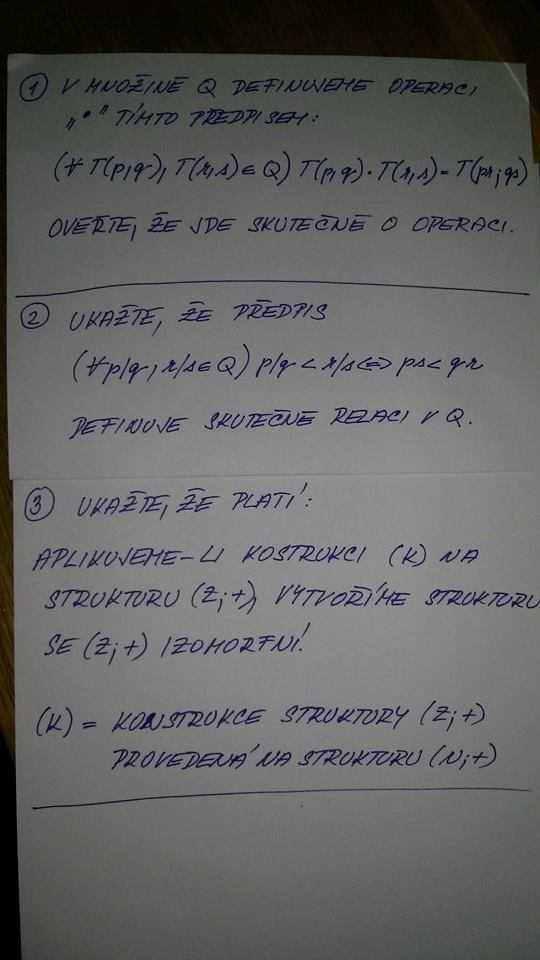 ① V MNOŽINĚ Q DEFINUJEME OPERACI
„•“ TÍMTO PŘEDPISEM:
(∀ T(p,q), T(r,s) ∈ Q) T(p,q) • T(r,s) = T(pr,qs)
OVĚŘTE, ŽE JDE SKUTEČNĚ O OPERACI.
② UKAŽTE, ŽE PŘEDPIS
(∀ p/q, r/s ∈ Q) p/q < r/s ⇔ ps < qr
DEFINUJE SKUTEČNĚ RELACI V Q.
③ UKAŽTE, ŽE PLATÍ:
APLIKUJEME-LI KOSTRUKCI (K) NA
STRUKTURU (Z,+), VYTVOŘÍME STRUKTURU
SE (Z,+) IZOMORFNÍ.
(K) = KONSTRUKCE STRUKTURY (Z,+)
PROVEDENÁ NA STRUKTURU (N,+)